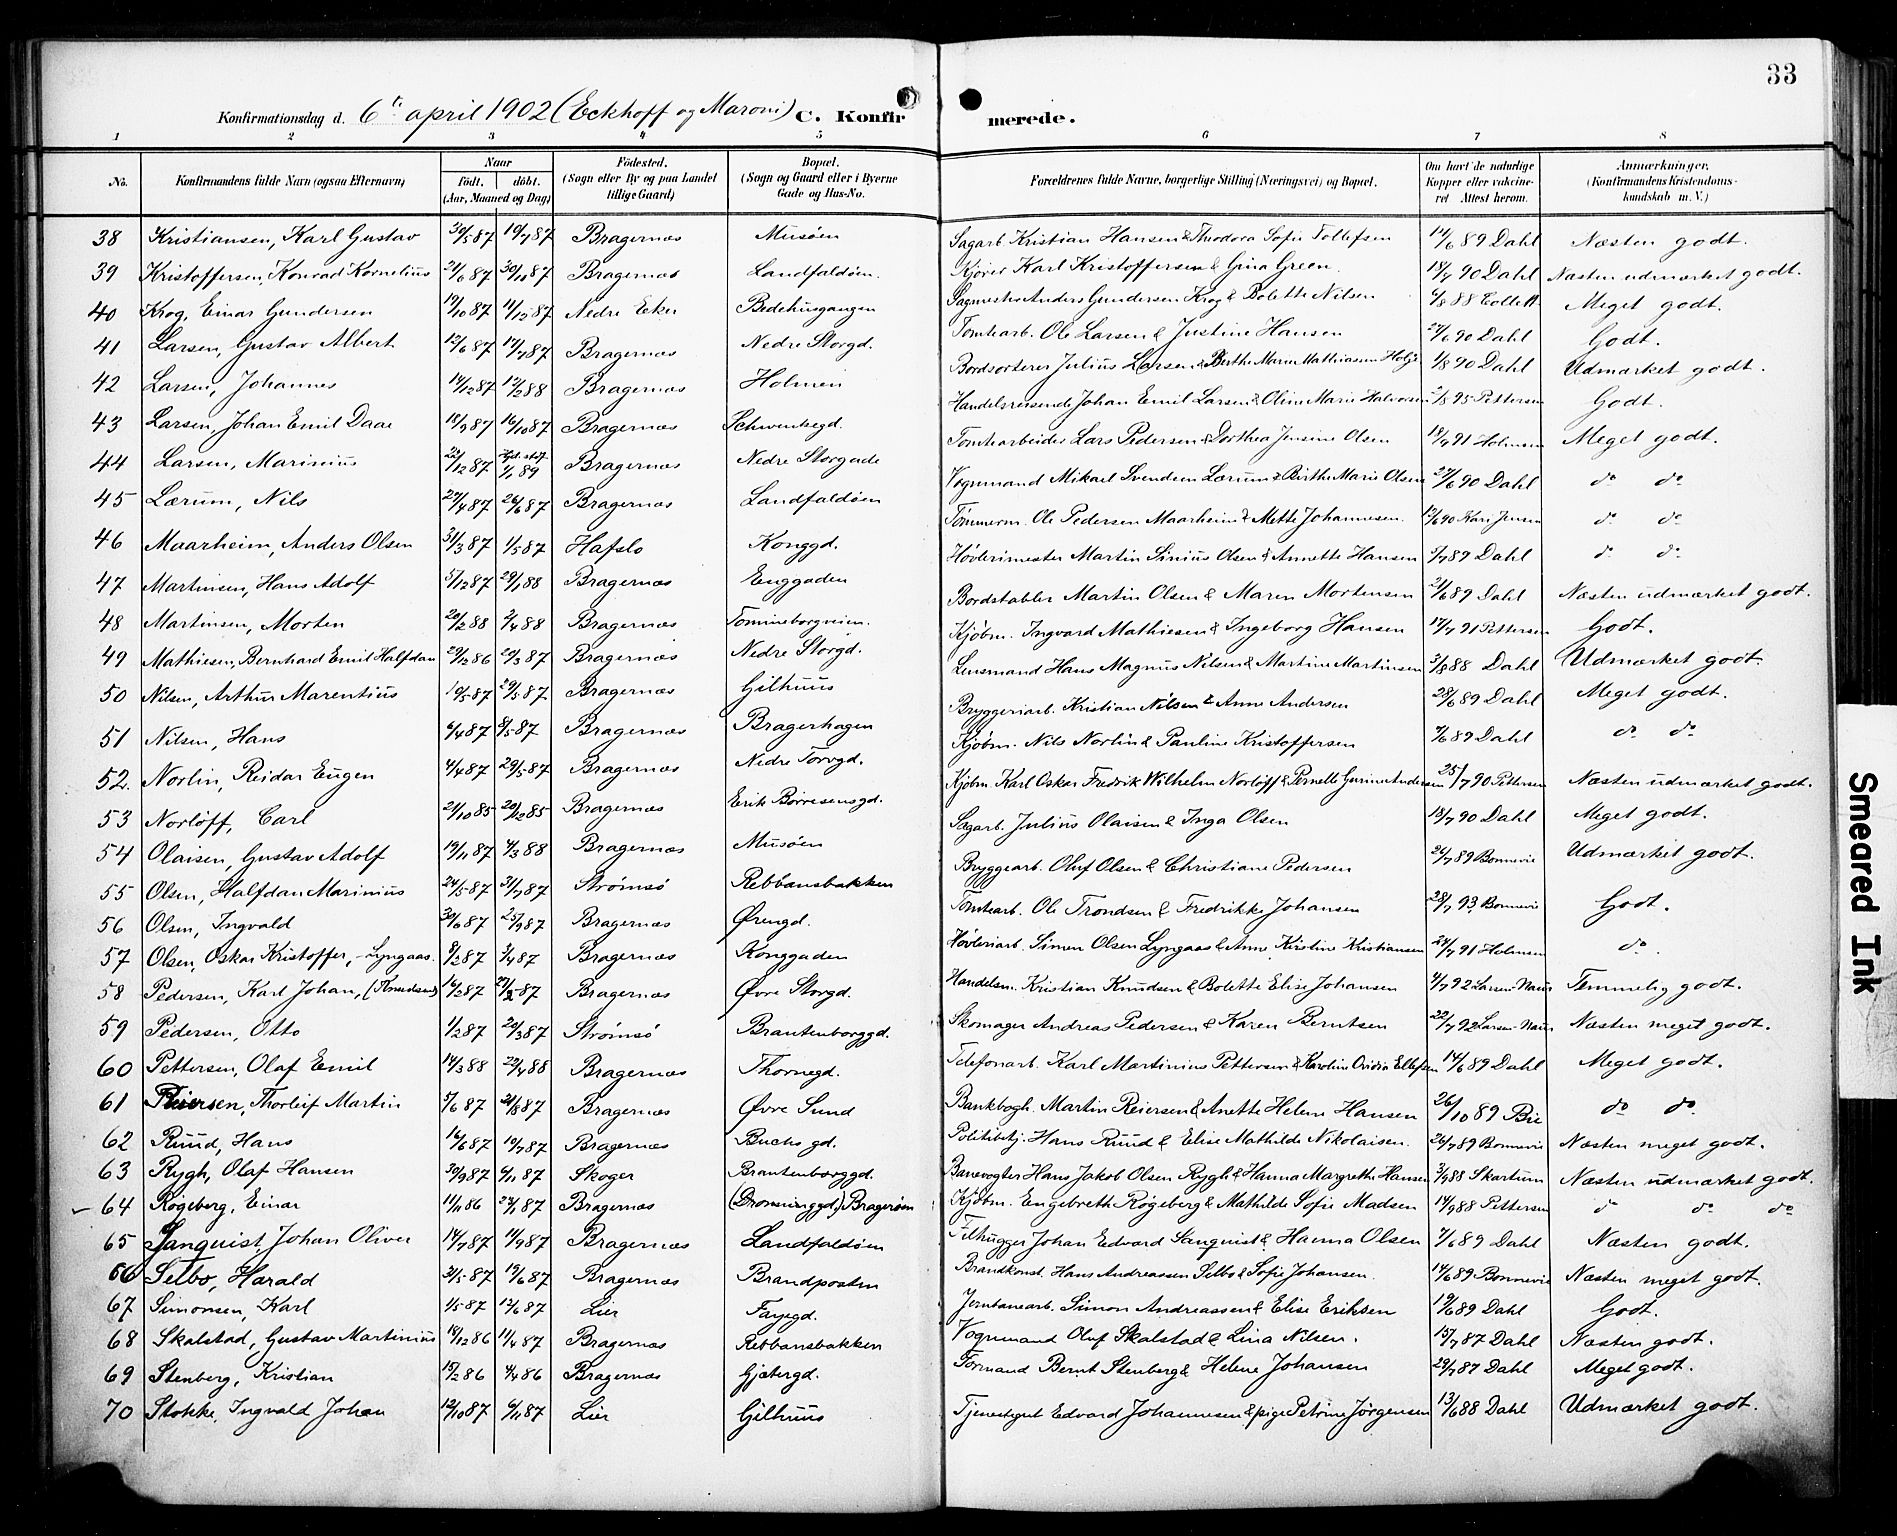 33
Konfirmationsdag d. 6te april 1902 (Eckhoff og Maroni) C. Konfir merede.
1 2 3 4 5 6 7 8
No. Konfirmandens fulde Navn (ogsaa Efternavn) Naar født, døbt. (Aar, Maaned og Dag) Fødested. (Sogn eller By og paa Landet tillige Gaard) Bopæl. (Sogn og Gaard eller i Byerne Gade og Hus-No. Forældrenes fulde Navne, borgerlige Stilling (Næringsvei) og Bopæl. Om havt de naturlige Kopper eller vaccineret Attest herom. Anmærkninger, (Konfirmandens Kristendomskundskab m. V.)
38 Kristiansen, Karl Gustav 30/5 87 10/7 87 Bragernæs Musøen Sagarb. Kristian Hansen & Theodora Sofie Tollefsen 14/6 89 Dahl Næsten godt.
39 Kristoffersen, Konrad Kornelius 21/6 87 30/10 87 Bragernæs Landfaldøen. Kjører Karl Kristoffersen & Gina Green. 18/7 90 Dahl Næsten udmærket godt.
40 Krog, Einar Gundersen 19/10 87 11/12 87 Nedre Eker Bedehusgangen Sagmester Anders Gundersen Krog & Bolette Nilsen 6/8 88 Collett Meget godt.
41 Larsen, Gustav Albert 12/6 87 17/7 87 Bragernæs Nedre Storgd. Tomtearb. Ole Larsen & Justine Hansen 27/6 90 Dahl Godt.
42 Larsen, Johannes 14/12 87 12/2 88 Bragernæs Holmen Bordsorterer Julius Larsen & Berthe Marie Mathiassen 1/8 90 Dahl Udmærket godt.
43 Larsen, Johan Emil Daae 18/9 87 16/10 87 Bragernæs Schwenkegd. Handelsreisende Johan Emil Larsen & Oline Marie Halvorsen 2/8 95 Pettersen Godt.
44 Larsen, Marinius 22/12 87 1/1 89 Bragernæs Nedre Storgade Tomtearbeider Lars Pedersen & Dorthea Jensine Olsen 18/7 91 Holmsen Meget godt.
45 Lærum, Nils 27/4 87 26/6 87 Bragernæs Landfaldøen Vognmand Mikael Svendsen Lærum & Birthe Marie Olsen 27/6 90 Dahl do do
46 Maarheim, Anders Olsen 31/3 87 1/5 87 Hafslo Konggd. Tømmerm. Ole Pedersen Maarheim & Mette Johannesen. 12/6 90 Kari Jensen do do
47 Martinsen, Hans Adolf 5/12 87 29/1 88 Bragernæs Enggaden Høvlerimester Martin Sinius Olsen & Annette Hansen 5/7 89 Dahl do do
48 Martinsen, Morten 20/2 88 2/4 88 Bragernæs Tomineborgveien. Bordstabler Martin Olsen & Maren Mortensen 21/6 89 Dahl Næsten udmærket godt.
49 Mathiesen, Bernhard Emil Halfdan 29/12 86 20/3 87 Bragernæs Nedre Storgd. Kjøbm. Ingvard Mathiesen & Ingeborg Hansen 17/7 91 Pettersen Godt.
50 Nilsen, Arthur Marentius 10/5 87 29/5 87 Bragernæs Gilhuus Lensmand Hans Magnus Nilsen & Martine Martinsen 3/8 88 Dahl Udmærket godt.
51 Nilsen, Hans 6/4 87 8/5 87 Bragernæs Bragerhagen Bryggeriarb. Kristian Nilsen & Anne Andersen 28/6 89 Dahl Meget godt.
52. Norlin, Reidar Eugen 4/4 87 29/5 87 Bragernæs Nedre Torvgd. Kjøbm. Nils Norlin & Pauline Kristoffersen 7/6 89 Dahl do do
53 Norløff, Carl 21/10 85 20/12 85 Bragernæs Erik Børresensgd. Kjøbm. Karl Oskar Fredrik Wilhelm Norløff & Pernelle Gurine Andersen 25/7 90 Pettersen Næsten udmærket godt.
54 Olaisen, Gustav Adolf 19/11 87 4/3 88 Bragernæs Musøen Sagarb. Julius Olaisen & Inga Olsen 18/7 90 Dahl Meget godt.
55 Olsen, Halfdan Marinius 24/5 87 31/7 87 Strømsø Rebbansbakken Bryggearb. Oluf Olsen & Christiane Pedersen 26/7 89 Bonnevie Udmærket godt.
56 Olsen, Ingvald 30/6 87 25/9 87 Bragernæs Ørengd. Tomtearb. Ole Trondsen & Fredrikke Johansen 28/7 93 Bonnevie Godt.
57 Olsen, Oskar Kristoffer, -Lyngaas. 8/2 87 3/4 87 Bragernæs Konggaden Høvleriarb. Simen Olsen Lyngaas & Anne Kirstine Kristiansen 24/7 91 Holmsen do.
58 Pedersen, Karl Johan, (Knudsen) 16/2 87 29/5 87 Bragernæs Øvre Storgd. Handelsm. Kristian Knudsen & Bolette Elise Johansen 4/7 92 Larsen-Naur Temmelig godt.
59 Pedersen, Otto 1/2 87 20/3 87 Strømsø Brantenborggd. Skomager Andreas Pedersen & Karen Berntsen 22/7 92 Larsen-Naur Næsten meget godt.
60 Pettersen, Olaf Emil 14/3 88 29/4 88 Bragernæs Thornegd. Telefonarb. Karl Martinius Pettersen & Karoline Ovidia Ellefsen 14/6 89 Dahl Meget godt.
61 Reiersen, Thorleif Martin 5/6 87 21/8 87 Bragernæs Øvre Sund Bankbogh. Martin Reiersen & Anette Helene Hansen 26/10 89 Bie do do
62 Ruud, Hans 16/6 87 10/7 87 Bragernæs Buchs gd. Politibetj. Hans Ruud & Elise Mathilde Nikolaisen. 26/7 89 Bonnevie Næsten meget godt.
63 Rygh, Olaf Hansen 30/9 87 6/11 87 Skoger Brantenborggd. Banevogter Hans Jakob Olsen Rygh & Hanna Margrethe Hansen 3/9 88 Skartum Næsten udmærket godt.
64 Røgeberg, Einar 11/11 86 23/1 87 Bragernæs (Dronninggd.) Bragerøen Kjøbm. Engebreth Røgeberg & Mathilde Sofie Madsen 14/9 88 Pettersen do do do
65 Sanquist, Johan Oliver 14/7 87 11/9 87 Bragernæs Landfaldøen Filhugger Johan Edvard Sanquist & Hanna Olsen 7/6 89 Dahl Næsten godt.
66 Selbo, Harald 31/5 87 19/6 87 Bragernæs Brandposten Brandkonst. Hans Andreassen Selbo & Sofie Johansen. 14/6 89 Bonnevie Næsten meget godt.
67 Simonsen, Karl 1/5 87 12/6 87 Lier Fayegd. Jernbanearb. Simon Andreassen & Elise Eriksen 19/6 89 Dahl Godt.
68 Skalstad, Gustav Martinius 18/12 86 11/4 87 Bragernæs Rebbansbakken Vognmand Oluf Skalstad & Lina Nilsen. 15/7 87 Dahl Næsten godt.
69 Stenberg, Kristian 15/2 86 4/4 86 Bragernæs Gjetergd. Formand Bernt Stenberg & Helene Johansen 29/7 87 Dahl Meget godt.
70 Stokke, Ingvald Johan 12/10 87 6/11 87 Lier Gilhuus Tjenestegut Edvard Johannesen & pige Petrine Jørgensen 13/6 88 Dahl Udmærket godt.
Smeared Ink